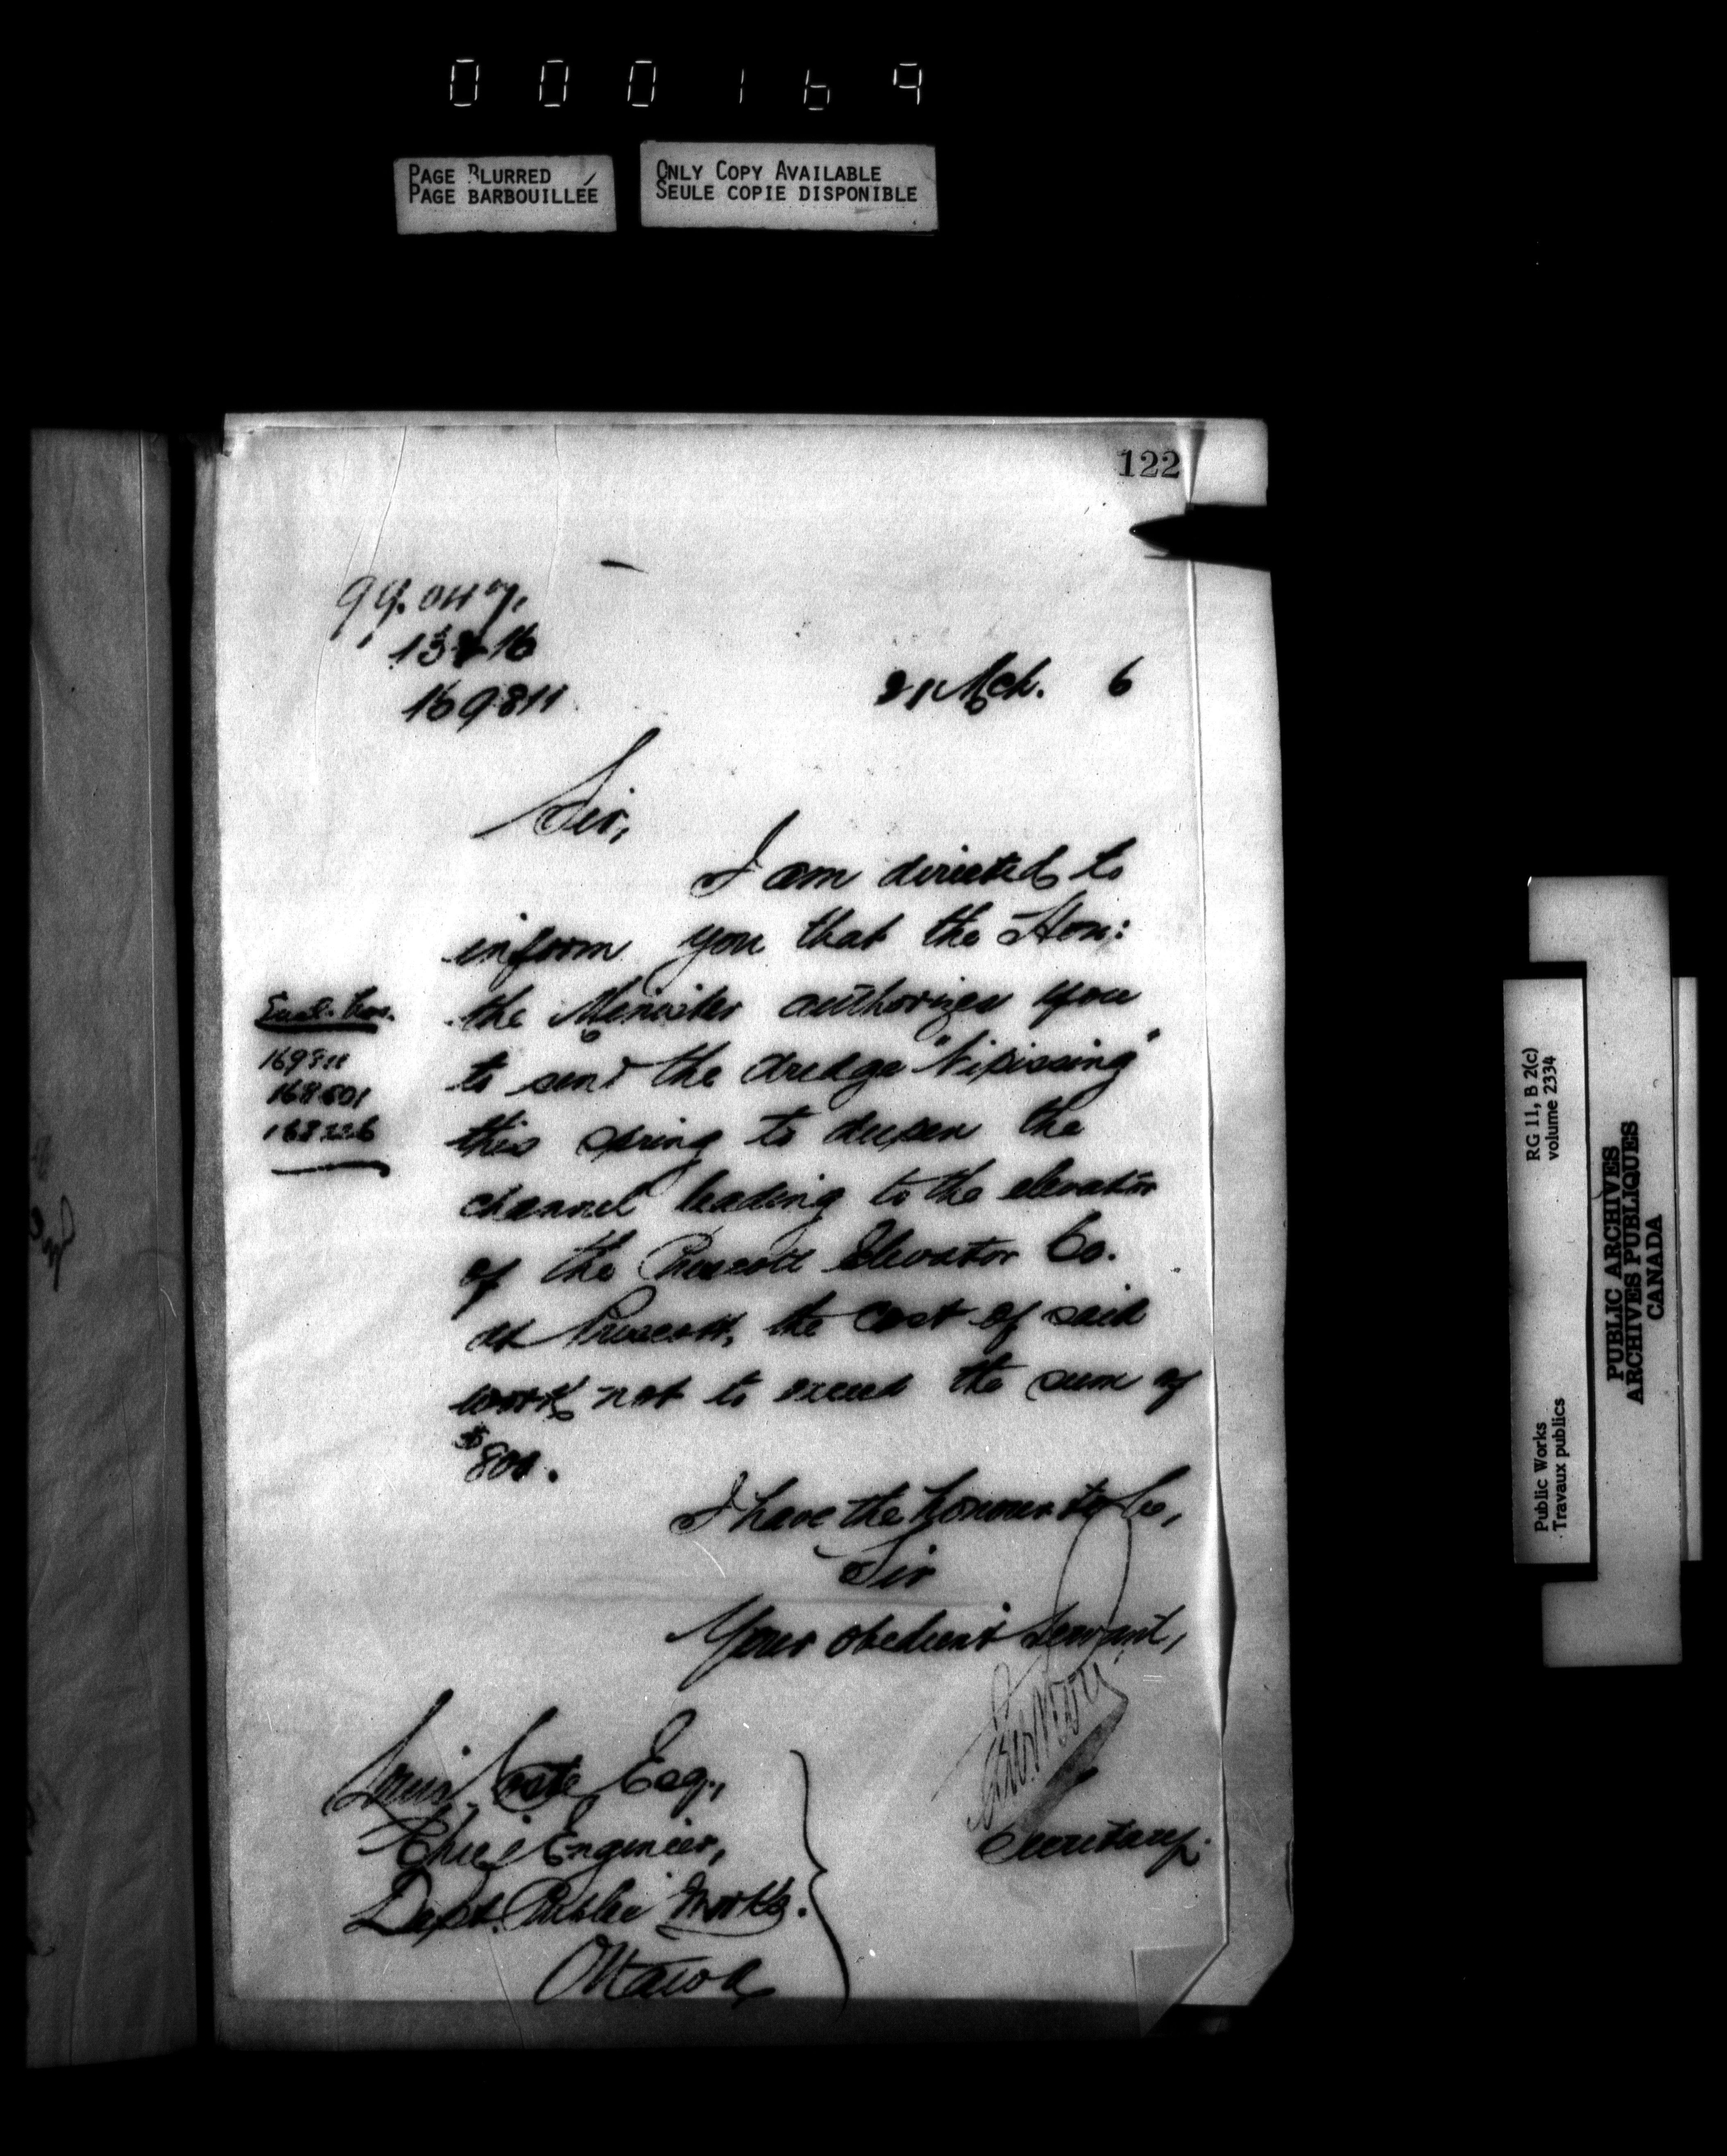 000169
PAGE BLURRED
PAGE BARBOUILLÉE
ONLY COPY AVAILABLE
SEULE COPIE DISPONIBLE
122
99.047.
169811
21 Mch. 6
Sir,
I am directed to
inform you that the Hon:
the Minister authorizes you
to send the dredge "Nipissing"
this spring to deepen the
channel leading to the elevator
of the Prescott Elevator Co.
at Prescott, the cost of said
work not to exceed the sum of
$800.
Encl. Nos.
169811
168501
168226
I have the honour to be,
Sir
Your obedient servant,
Secretary.
Louis Coste Esq.,
Chief Engineer,
Dept. Public Works.
Ottawa
RG 11, B 2(c)
volume 2334
Public Works
Travaux publics
PUBLIC ARCHIVES
ARCHIVES PUBLIQUES
CANADA